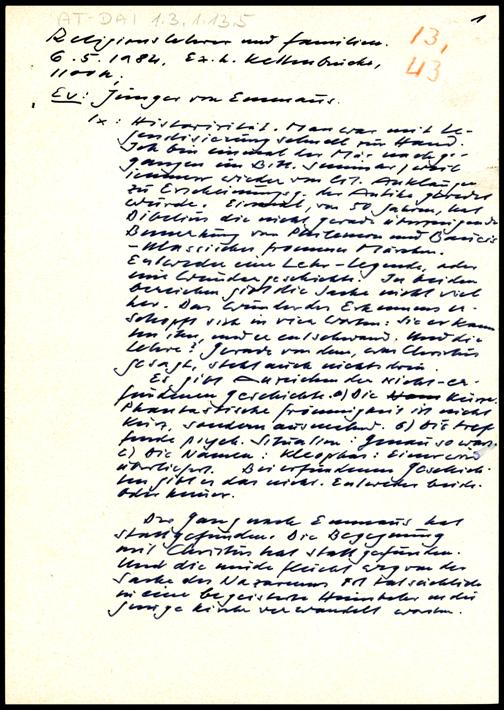 AT-DAI 1.3.1.13.5
1
Religionslehrer und Familien.
13,
43
6.5.1984, Ex.h. Kettenbrücke,
1100h,
Ev: Jünger von Emmaus.
1x: Historizität. Man war mit Le-
gendisierung schnell zur Hand.
Ich bin einmal der Mär nachge-
gangen im Bibl. Seminar, weil
immer wieder von lit. Anklängen
zu Erscheinungsg. der Antike geredet
wurde. Einmal, vor 50 Jahren, hat
Dibelius die nicht gerade überzeugende
Bemerkung von Philemon und Baucis
- Klassisches frommes Märchen.
Entweder eine Lehr-Legende, oder
eine Wundergeschichte. In beiden
Bereichen gibt die Sache nicht viel
her. Das Wunder des Erkennens er-
schöpft sich in vier Worten: Sie erkann
ten ihn, und er entschwand. Und die
Lehre? Gerade von dem, was Christus
gesagt, steht auch nichts drin.
Es gibt Anzeichen der Nicht-er-
fundenen Geschichte. a) Die Kürze.
Phantastische Frömmigkeit ist nicht
kurz, sondern ausmalend. b) Die tref
fende psych. Situation: Genau so war's.
c) Die Namen: Kleophas: Einer wird
überliefert. Bei erfundenen Geschich
ten gibt es das nicht. Entweder beide
oder keiner.
Der Gang nach Emmaus hat
stattgefunden. Die Begegnung
mit Christus hat stattgefunden.
Und die müde Flucht weg von der
Sache des Nazareners ist tatsächlich
in eine begeisterte Heimkehr in die
junge Kirche verwandelt worden.